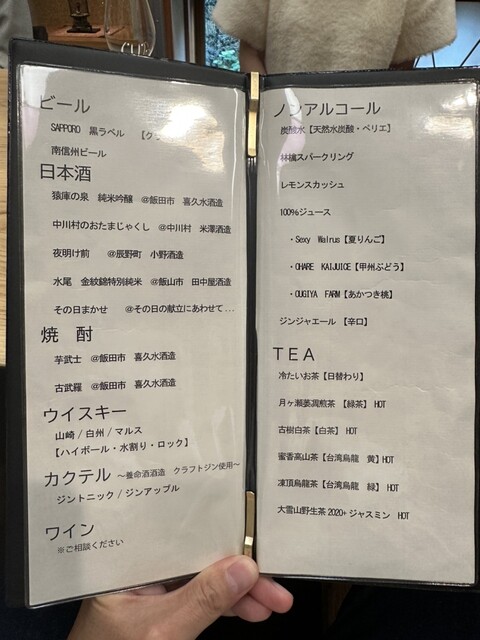 ビール
SAPPORO 黒ラベル 【グ
南信州ビール
日本酒
猿庫の泉 純米吟醸 @飯田市 喜久水酒造
中川村のおたまじゃくし @中川村 米澤酒造
夜明け前 @辰野町 小野酒造
水尾 金紋錦特別純米 @飯山市 田中屋酒造
その日まかせ @その日の献立にあわせて...
焼 酎
芋武士 @飯田市 喜久水酒造
古武羅 @飯田市 喜久水酒造
ウイスキー
山崎/白州/マルス
【ハイボール・水割り・ロック】
カクテル ~養命酒酒造 クラフトジン使用~
ジントニック/ジンアップル
ワイン
※ご相談ください
ノンアルコール
炭酸水【天然水炭酸・ペリエ】
林檎スパークリング
レモンスカッシュ
100%ジュース
・Sexy Walrus【夏りんご】
・OHARE KAIJUICE【甲州ぶどう】
・OUGIYA FARM【あかつき桃】
ジンジャエール【辛口】
TEA
冷たいお茶【日替わり】
月ヶ瀬萎凋煎茶 【緑茶】 HOT
古樹白茶【白茶】 HOT
蜜香高山茶【台湾烏龍 黄】HOT
凍頂烏龍茶【台湾烏龍 緑】 HOT
大雪山野生茶 2020+ジャスミン HOT